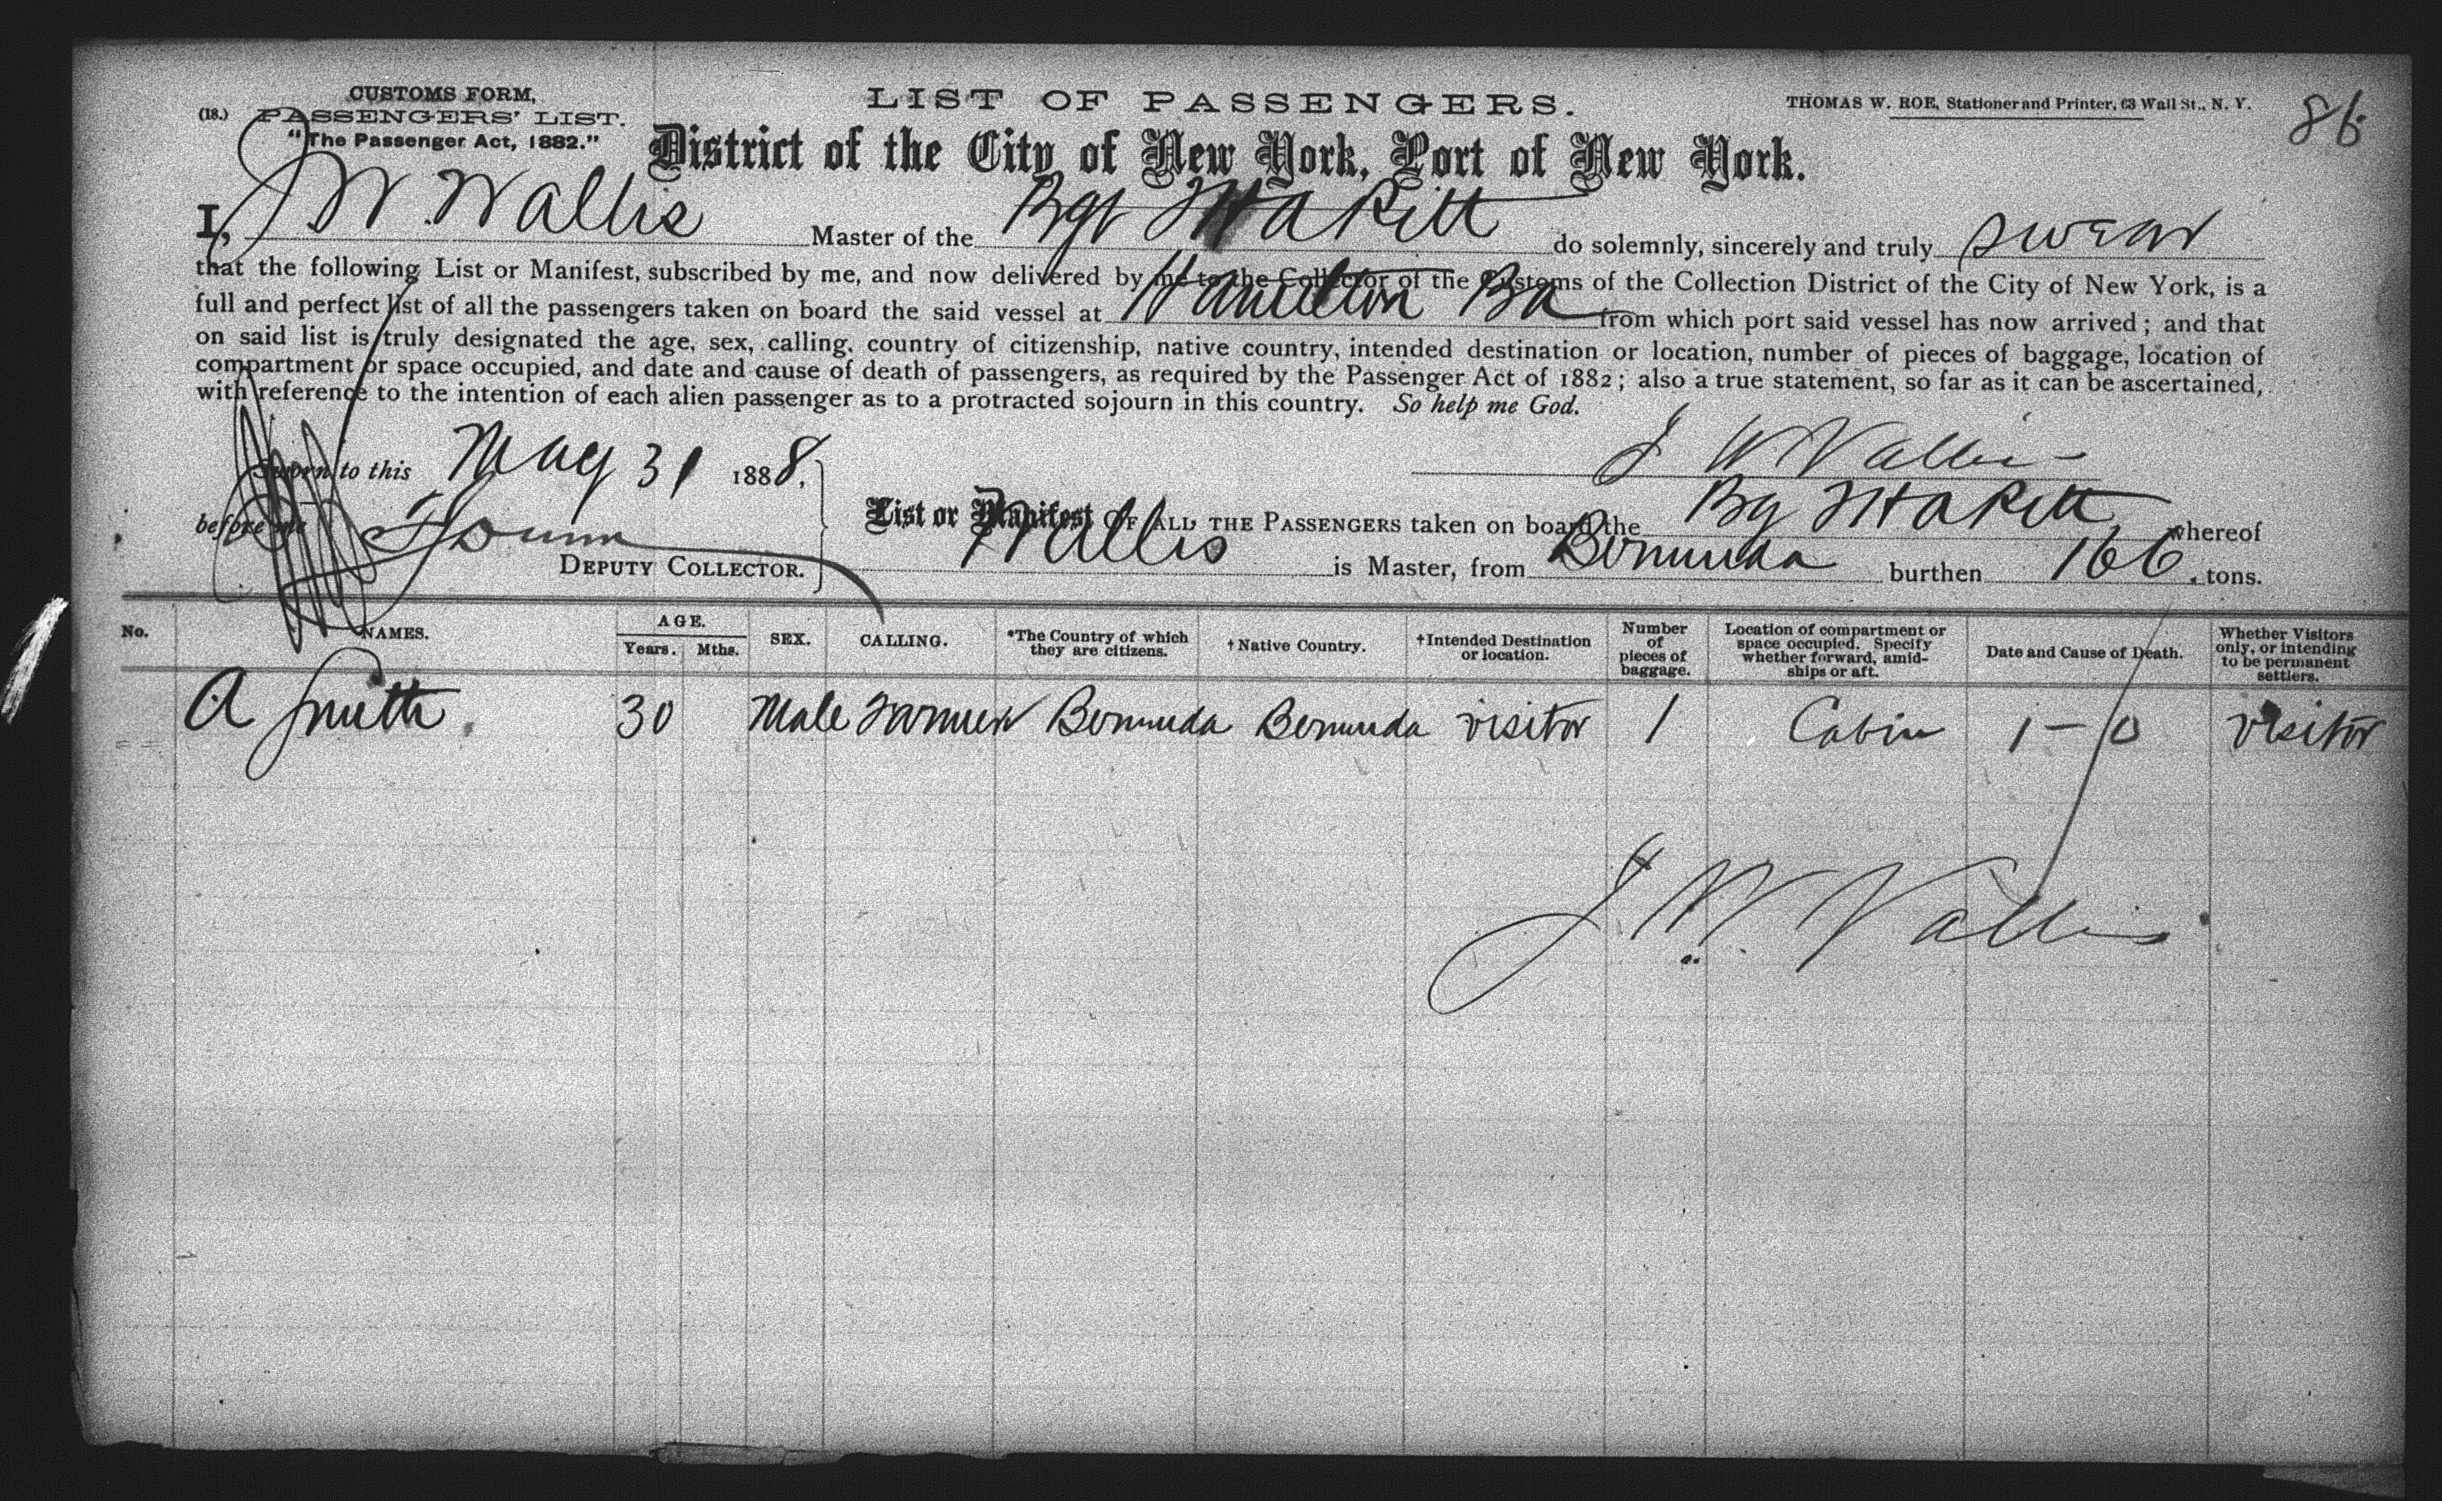 CUSTOMS FORM,
(18.) PASSENGERS' LIST.
"The Passenger Act, 1882."
LIST OF PASSENGERS.
THOMAS W. ROE, Stationer and Printer, 63 Wall St., N. Y.
86
District of the City of New York, Port of New York.
I, J W. Wallis Master of the T H A Pitt do solemnly, sincerely and truly swear
that the following List or Manifest, subscribed by me, and now delivered by me to the Collector of the Customs of the Collection District of the City of New York, is a
full and perfect list of all the passengers taken on board the said vessel at Hamilton Ba from which port said vessel has now arrived; and that
on said list is truly designated the age, sex, calling, country of citizenship, native country, intended destination or location, number of pieces of baggage, location of
compartment or space occupied, and date and cause of death of passengers, as required by the Passenger Act of 1882; also a true statement, so far as it can be ascertained,
with reference to the intention of each alien passenger as to a protracted sojourn in this country. So help me God.
Sworn to this May 31 1888,
J W Wallis
before me Dunn
DEPUTY COLLECTOR.
List or Manifest OF ALL THE PASSENGERS taken on board the T H A Pitt whereof
Wallis is Master, from Bermuda burthen 166 tons.
No. NAMES. AGE. Years. Mths. SEX. CALLING. *The Country of which they are citizens. †Native Country. †Intended Destination or location. Number of pieces of baggage. Location of compartment or space occupied. Specify whether forward, amidships or aft. Date and Cause of Death. Whether Visitors only, or intending to be permanent settlers.
A Smith 30 Male Farmer Bermuda Bermuda visitor 1 Cabin 1 - 0 visitor
J. W. Wallis